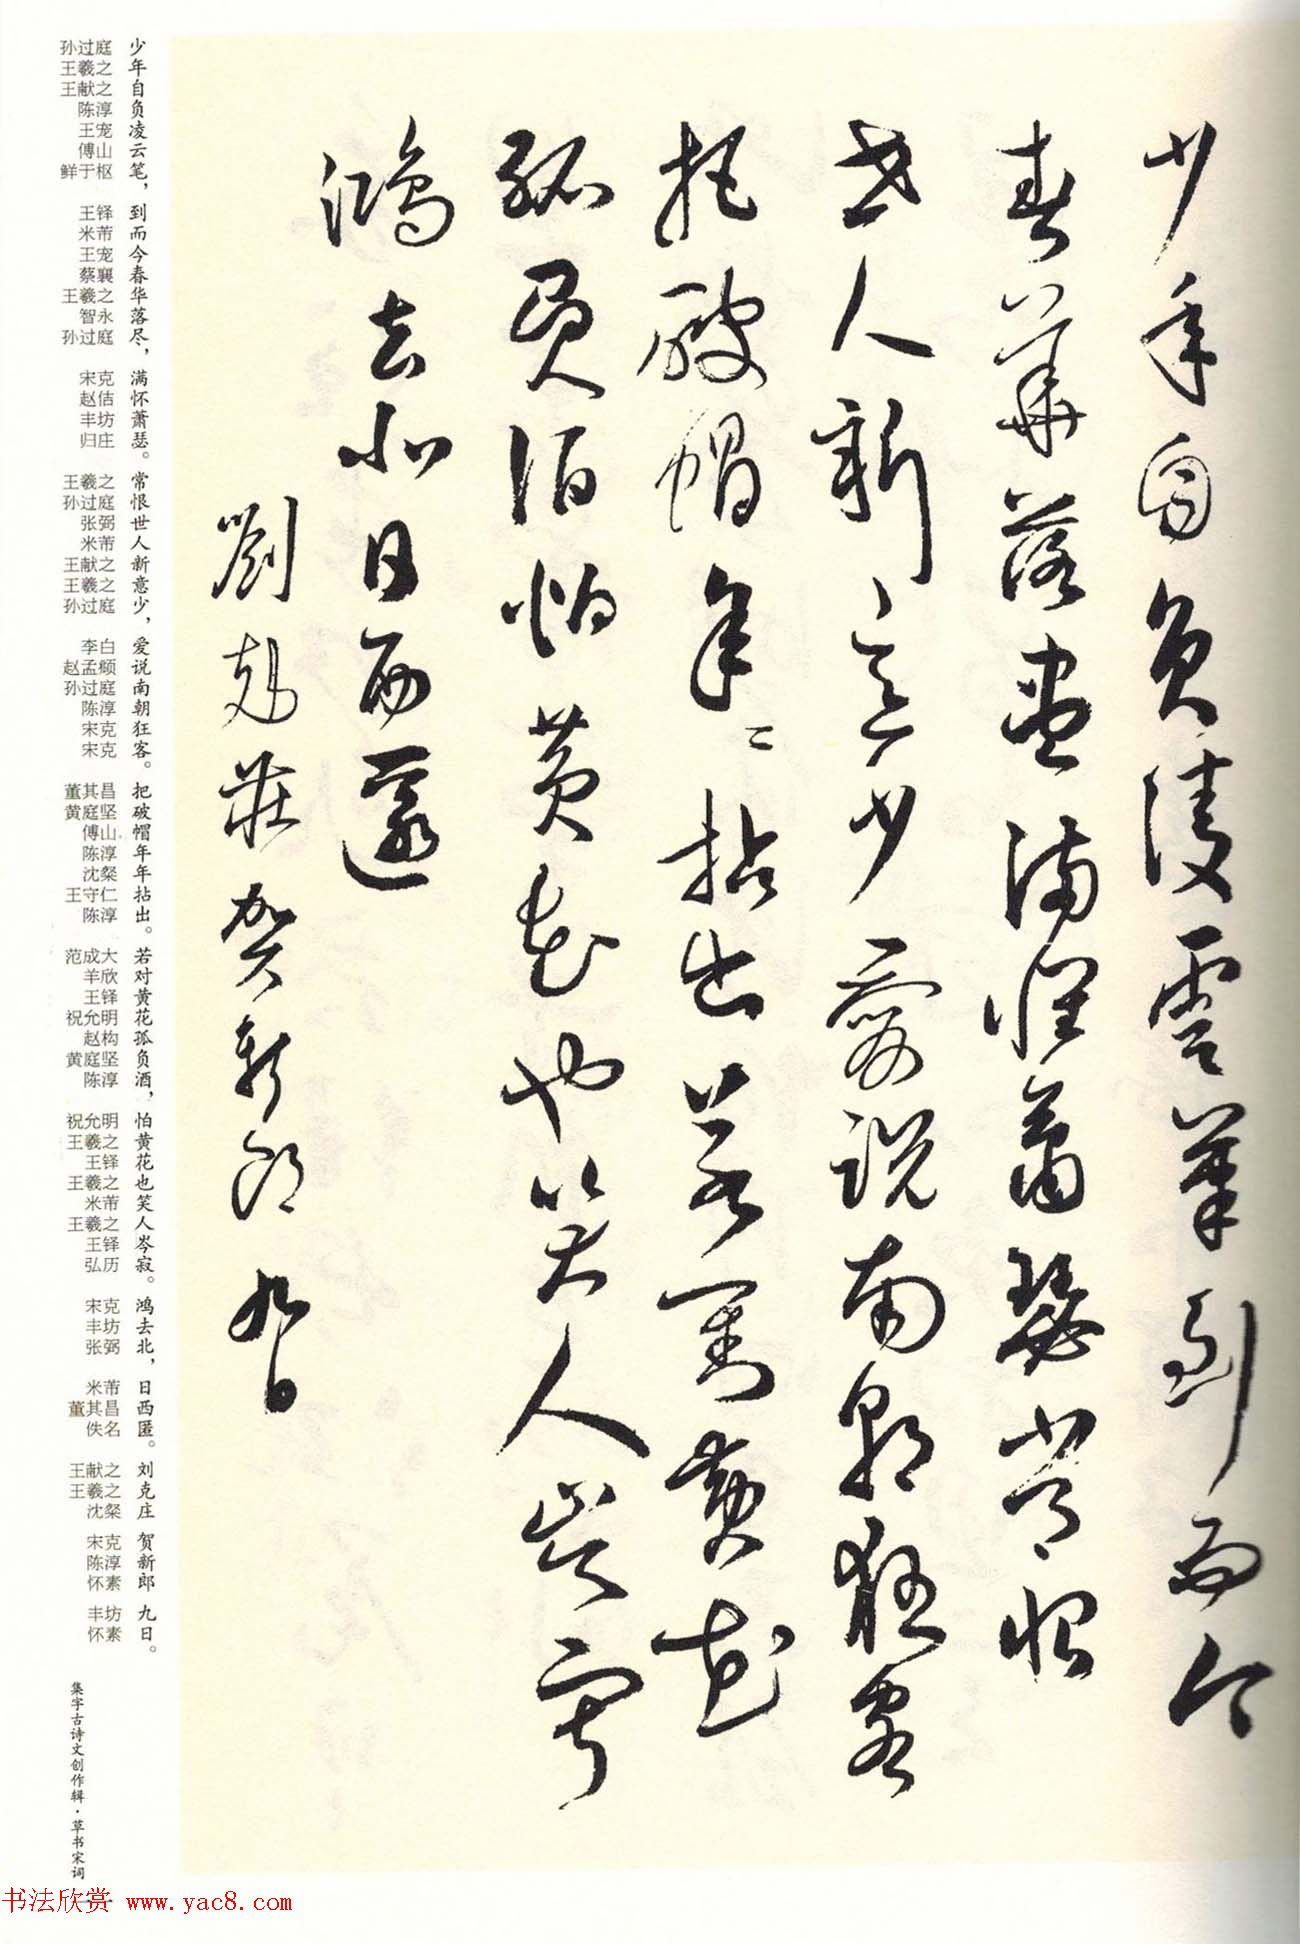 少年自負凌雲筆到而今
春華落盡滿懷蕭瑟常恨
世人新意少愛說南朝狂客
把破帽年〻拈出若對黃花
孤負酒怕黃花也笑人岑寂
鴻去北日西匿
劉克莊賀新郎九日
少年自负凌云笔，到而今春华落尽，满怀萧瑟。常恨世人新意少，爱说南朝狂客。把破帽年年拈出。若对黄花孤负酒，怕黄花也笑人岑寂。鸿去北，日西匿。刘克庄 贺新郎 九日。
孙过庭 王羲之 王献之 陈淳 王宠 傅山 鲜于枢 王铎 米芾 王宠 蔡襄 王羲之 智永 孙过庭 宋克 赵佶 丰坊 归庄 王羲之 孙过庭 张弼 米芾 王献之 王羲之 孙过庭 李白 赵孟頫 孙过庭 陈淳 宋克 宋克 董其昌 黄庭坚 傅山 陈淳 沈粲 王守仁 陈淳 范成大 羊欣 王铎 祝允明 赵构 黄庭坚 陈淳 祝允明 王羲之 王铎 王羲之 米芾 王羲之 王铎 弘历 宋克 丰坊 张弼 米芾 董其昌 佚名 王献之 王羲之 沈粲 宋克 陈淳 怀素 丰坊 怀素
集字古诗文创作辑·草书宋词
书法欣赏 www.yac8.com